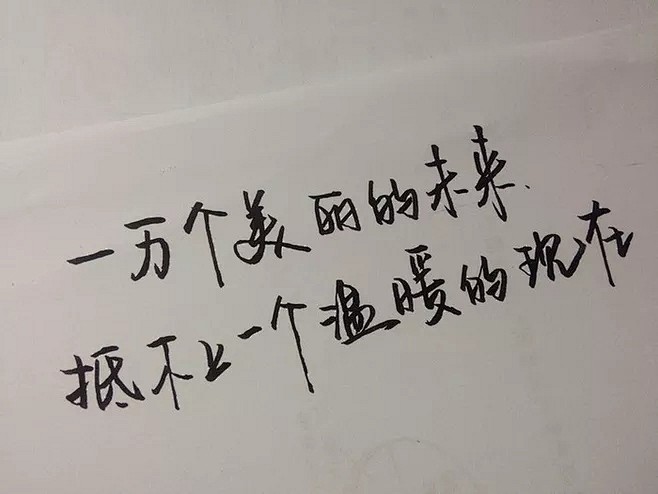 一万个美丽的未来、
抵不上一个温暖的现在